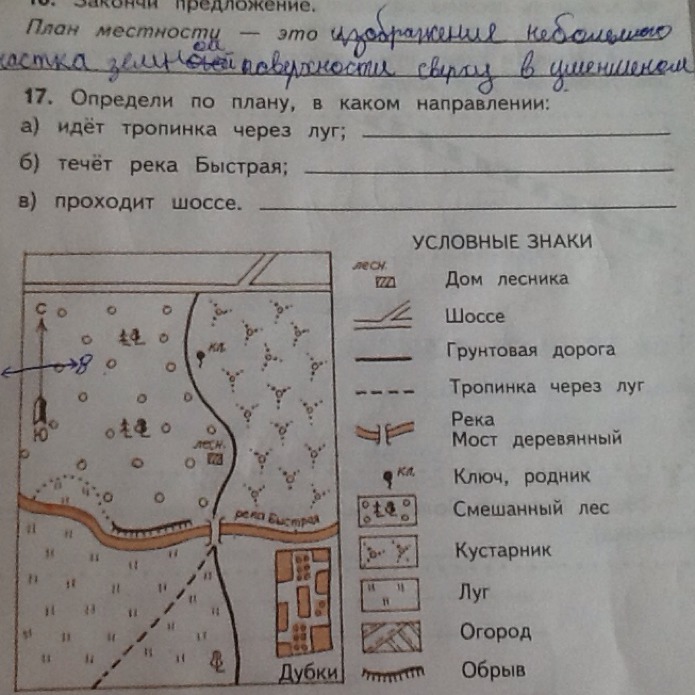 16. Закончи предложение.
План местности — это изображение небольшого
участка земной поверхности сверху в уменшеном
17. Определи по плану, в каком направлении:
а) идёт тропинка через луг;
б) течёт река Быстрая;
в) проходит шоссе.
УСЛОВНЫЕ ЗНАКИ
лесн.
Дом лесника
Шоссе
Грунтовая дорога
Тропинка через луг
Река
Мост деревянный
кл.
Ключ, родник
Смешанный лес
Кустарник
Луг
Огород
Обрыв
С
В
Ю
кл.
лесн.
река Быстрая
Дубки